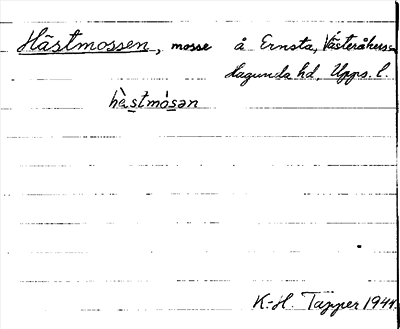 Hästmossen, mosse å Ernsta, Västeråkers sn
Hagunda hd, Upps. l.
hästmósən
K.-H. Tapper 1944.